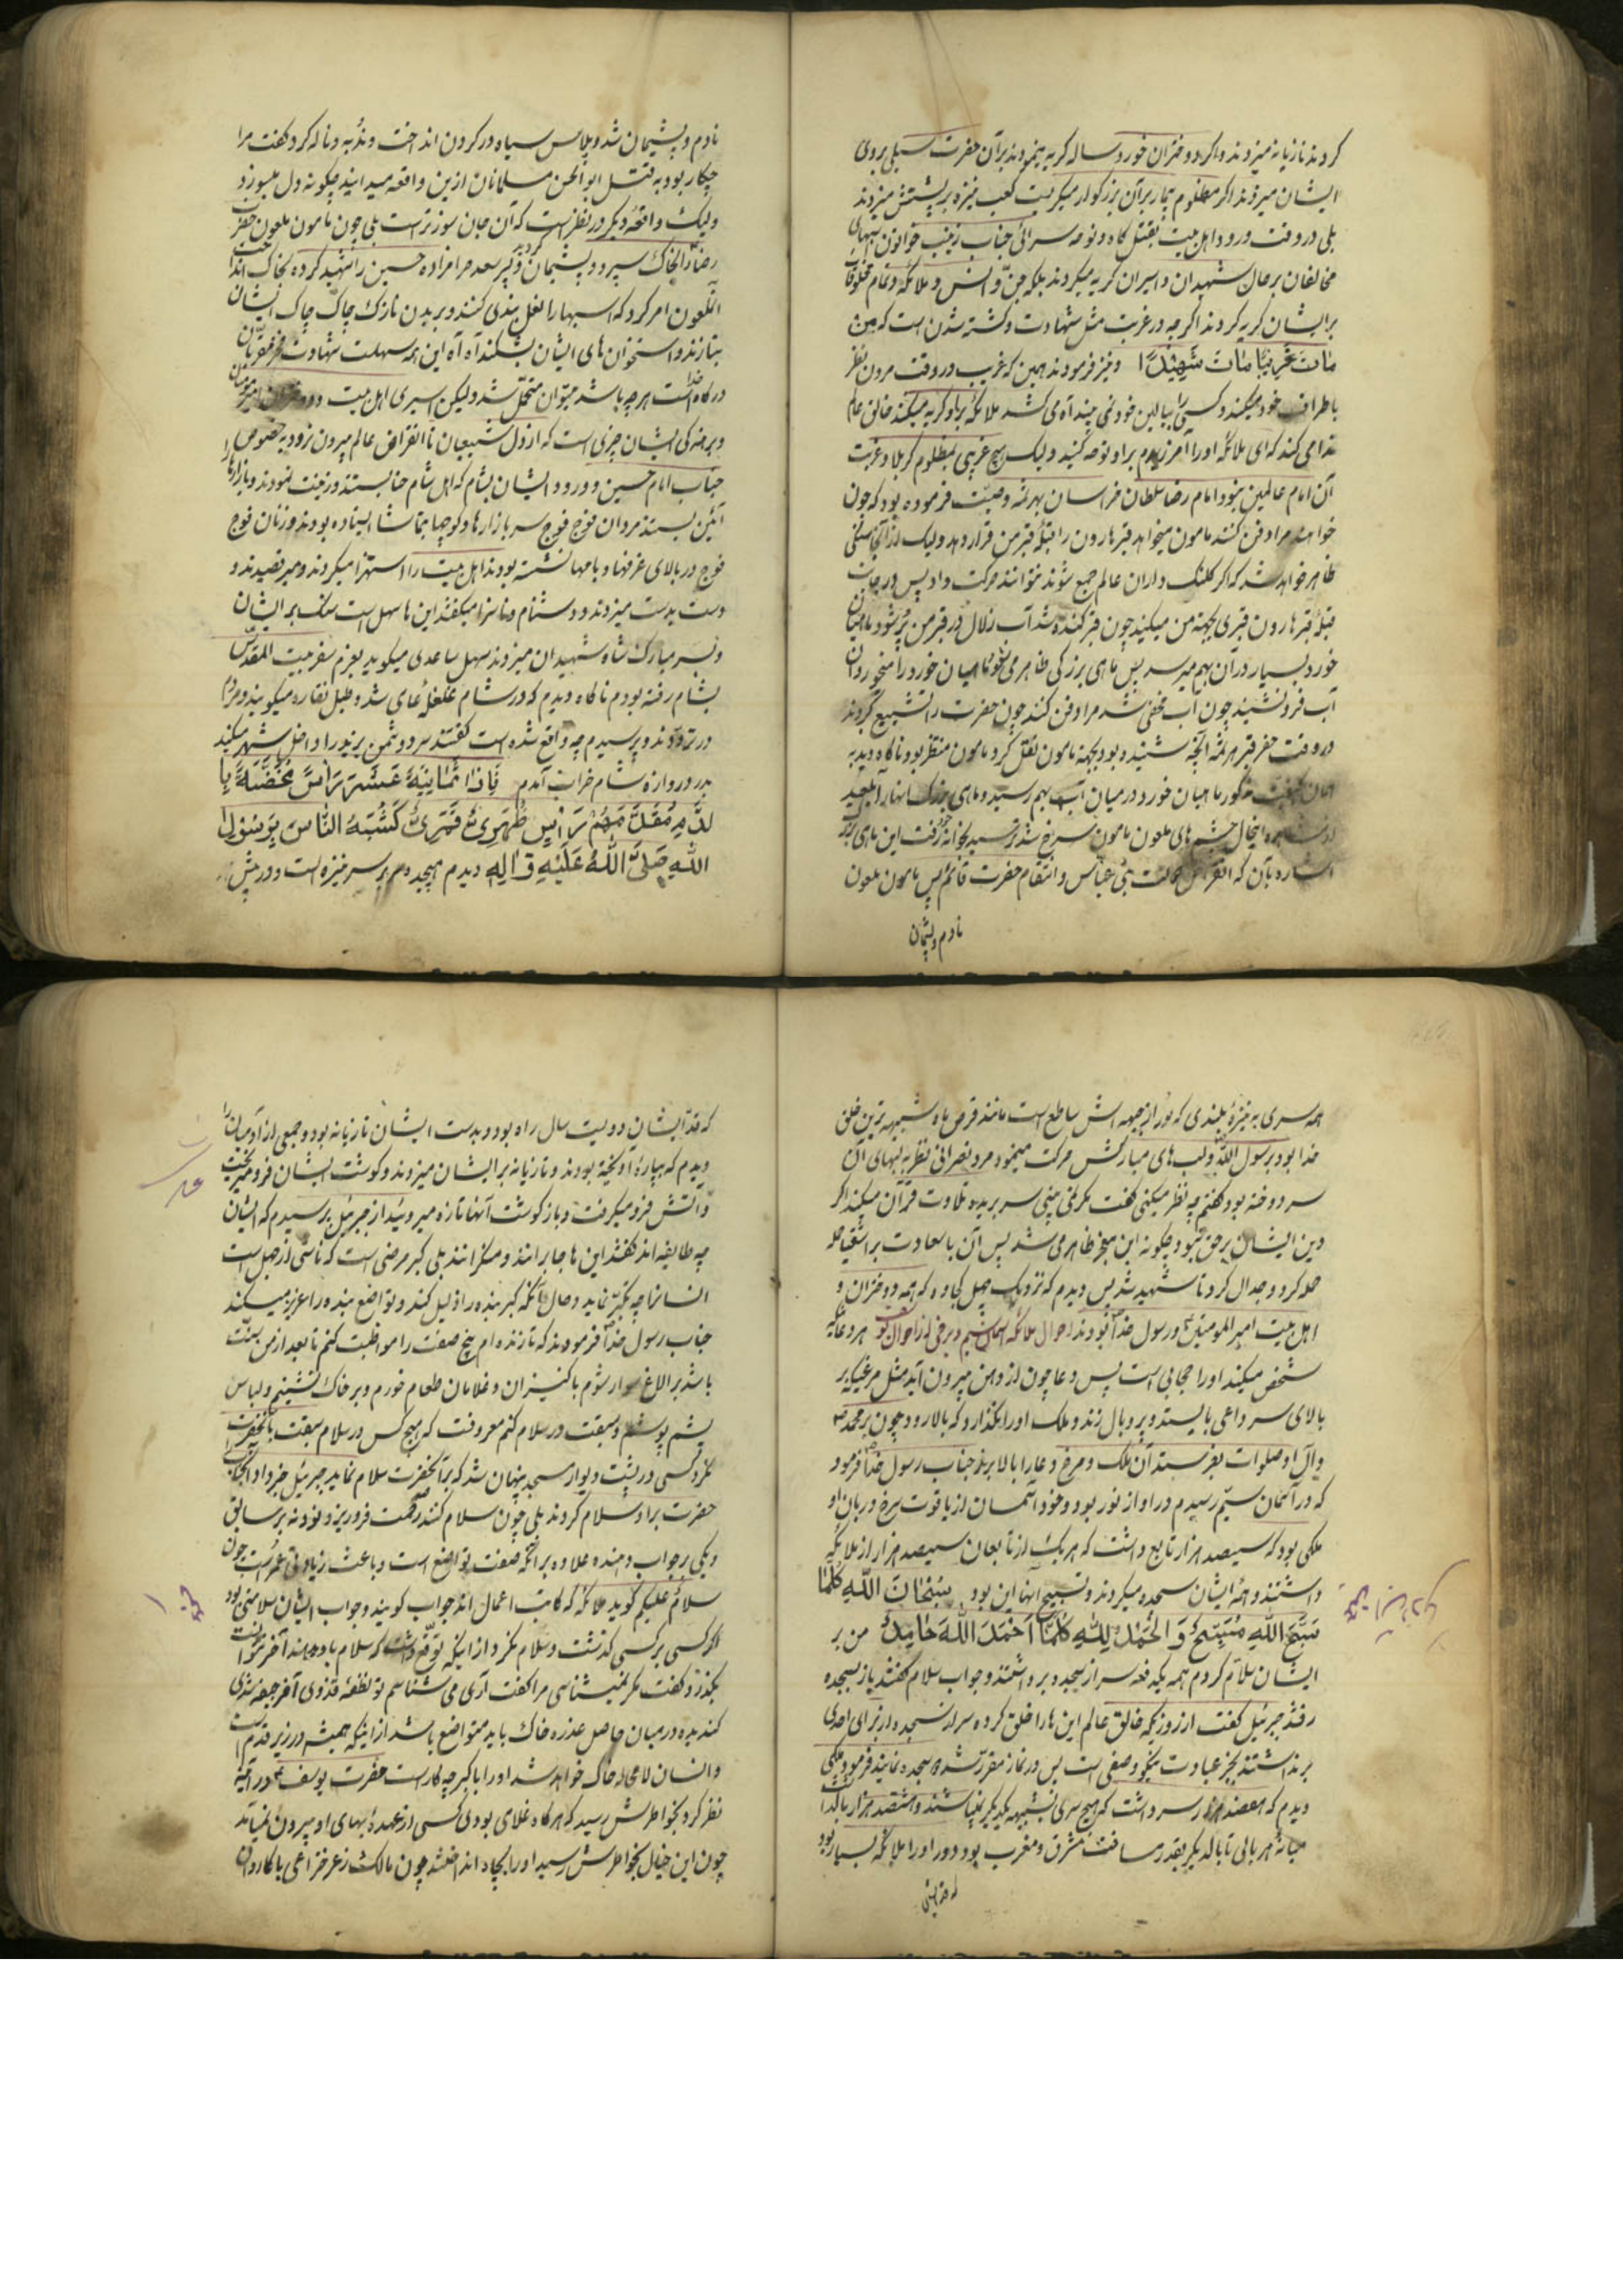 کردند تازیانه میزدند و اگر دختران خورد ساله گریه مینمودند بر آن حضرت سیلی بروی
ایشان میزدند اگر مظلوم بیمار بر آن بزرگوار میگریست کعب نیزه بر پشتش میزدند
بلی در وقت ورود اهل بیت بقتل گاه و نوحه سرائی جناب زینب خواتون
مخالفان بر حال شهیدان و اسیران گریه میکردند بلکه جن و انس و ملائکه و تمام مخلوقات
بر ایشان گریه کردند اگر چه در غربت مثل شهادت و کشته شدن است که من
مات غریبا مات شهیدا و نیز فرمودند همین که غریب در وقت مردن نظر
باطراف خود میکند و کسی را ببالین خود نمی بیند آه می کشد ملائکه بر او گریه میکنند خالق عالم
ندا می کند که ای ملائکه او را آمرزیدم بر او نوحه کنید ولیک هیچ غریبی بمظلوم کربلا و غربت
آن امام عالمین نبود امام رضا سلطان خراسان بهرثمه وصیت فرموده بود که چون
خواهند مرا دفن کنند مامون میخواهد قبر هارون را قبله قبر من قرار دهد ولیک از آنجا سنگی
ظاهر خواهد شد که اگر کلنک داران عالم جمع شوند نتوانند حرکت داد پس در جانب
قبله قبر هارون قبری بجهته من میکنند چون قبر کنده شد آب زلال در قبر من پر شود و ماهیان
خورد بسیار در آن بهم میرسد پس ماهی بزرگی ظاهر می شود ماهیان خورد را میخورد آن
آب فرو نشیند چون آب مخفی شد مرا دفن کنند چون حضرت را تشییع کردند
در وقت حفر قبر هرثمه آنچه شنیده بود بجهته مامون نقل کرد مامون منتظر بود ناگاه دید به
همان کیفیت مذکور ماهیان خورد در میان آب بهم رسید و ماهی بزرگ آنها را بلعید
از مشاهده اینحال چشم های ملعون مامون سرخ شد و ترسید بخواند گفت این ماهی بزرگ
اشاره بآن که انقراض دولت بنی عباس و انتقام حضرت قائم پس مامون ملعون
نادم و پشیمان
نادم و پشیمان شد و پلاس سیاه در گردن انداخت و ندبه و ناله کرد گفت مرا
چکار بود به قتل ابوالحسن مسلمانان ازین واقعه میدانید چگونه دل میسوزد
ولیک واقعه دیگر در نظر است که آن جان سوزتر است بلی چون مامون ملعون حضرت
رضا را بخاک سپرد و پشیمان گردید و پسر سعد حرامزاده حسین را شهید کرده بخاک انداخت
آنملعون امر کرد که اسبها را نعل بندی کنند و بر بدن نازک چاک چاک ایشان
بتازند و استخوان های ایشان بشکنند آه آه این همه سهلست شهادت فخر مقربان
درگاه خدا است هر چه باشد میتوان متحمل شد ولیکن اسیری اهل بیت و دختران امیر مومنان
و برهنه کی ایشان چیزی است که از دل شیعیان تا انقراض عالم بیرون نرود بخصوص
جناب امام حسین و ورود ایشان بشام که اهل شام حنا بستند و زینت نمودند و بازارها را
آئین بستند مردان فوج فوج سر بازارها و کوچها بتماشا ایستاده بودند و زنان فوج
فوج در بالای غرفها و بامها نشسته بودند اهل بیت را استهزا میکردند و میرقصیدند و
دست بدست میزدند و دشنام و ناسزا میگفتند این ها سهل است سنک بر ایشان
و بسر مبارک شاه شهیدان میزدند سهل ساعدی میگوید بعزم سفر بیت المقدس
بشام رفته بودم ناگاه دیدم که در شام غلغله عامی شد و طبل نقاره میکوبند و مردم
در ترددند و پرسیدم چه واقع شده است گفتند سر دشمن یزید را داخل شهر میکنند
بدر دروازه شام خراب آمدم فاذا ثمانیة عشر راس مخضبة با
لدم مقدمهم راس ظهری قمری کشبه الناس برسول
الله صلی الله علیه و اله دیدم هیجده سر بر سر نیزه است و در پیش
همه سری به نیزه بلندی که نور از جبهه اش ساطع است مانند قرص ماه شبیه ترین خلق
خدا بود برسول الله و لب های مبارکش حرکت مینمود مرد نصرانی نظر به لبهای آن
سر دوخته بود گفتم چه نظر میکنی گفت مگر نمی بینی سر بریده تلاوت قرآن میکند اگر
دین ایشان بر حق نبود چگونه این معجز ظاهر می شد پس آن باسعادت بر اشقیا حمله
حمله کرد و جدال کرد تا شهید شد پس دیدم که نزدیک چهل کجاوه که همه دختران و
اهل بیت امیر المومنین و رسول خدا بودند احوال ملائکه آسمان سیم و برخی از احوال هر دعا که
شخص میکند او را حجابی است پس دعا چون از دهن بیرون آید مثل مرغیکه بر
بالای سر داعی بایستد و پر و بال زند و ملک او را نگذارد که بالا رود چون بر محمد
و آل او صلوات بفرستد آن ملک و مرغ دعا را بالا برند جناب رسول خدا فرمود
که در آسمان سیم رسیدم در او از نور بود و خود آسمان از یاقوت سرخ و دربان او
ملکی بود که سیصد هزار تابع داشت که هر یک از تابعان سیصد هزار از ملائکه
داشتند و همه ایشان سجده میکردند و تسبیح آنها این بود سبحان الله کلما
سبح الله مسبح و الحمد لله کلما احمد الله حامد من بر
ایشان سلام کردم همه یکدفعه سر از سجده برداشتند و جواب سلام گفتند باز بسجده
رفتند جبرئیل گفت از روزیکه خالق عالم این ها را خلق کرده سر از سجده از برای احدی
برنداشتند بجز عبادت نیکو وصفی است پس در نماز مقرر شد سجده نمایند فرمود ملکی
دیدم که هفصد هزار سر داشت که هیچ سری شبیه یکدیگر نبباشند و هشتصد هزار بال
میانه هر بالی تا بال دیگر بقدر مسافت مشرق و مغرب بود دور او را ملائکه بسیار بود
که قد ایشان
که قد ایشان دویست سال راه بود و بدست ایشان تازیانه بود و جمعی از آدمیان را
دیدم که بپاره آویخته بودند و تازیانه بر ایشان میزدند و گوشت ایشان فرو میریخت
و آتش فرو میگرفت و باز گوشت آنها تازه میروئید از جبرئیل پرسیدم که ایشان
چه طایفه اند گفتند این ها جابرانند و متکبرانند بلی کبر مرضی است که ناشی از جهل است
انسانرا چه تکبر نماید و حال آنکه کبر بنده را ذلیل کند و تواضع بنده را عزیز میکند
جناب رسول خدا فرمودند که تا زنده ام پنج صفت را مواظبت کنم تا بعد از من سنت
باشد بر الاغ سوار شوم با کنیزان و غلامان طعام خورم و بر خاک نشینم و لباس
پشم پوشم و سبقت در سلام کنم معروفت که هیچ کس در سلام سبقت بآنحضرت
نکرد کسی در پشت دیوار مسجد پنهان شد که بر آنحضرت سلام نماید جبرئیل خبر داد آنجناب
حضرت بر او سلام کردند بلی چون سلام کنند رحمت فرو ریزد نود و نه بر سابق
و یکی بر جواب دهنده علاوه بر آنکه صفت تواضع است و باعث زیادتی عمر است چون
سلام علیکم گوید ملائکه که کاتب اعمال اند جواب گویند و جواب ایشان سلامتی بود
اگر کسی بر کسی گذشت و سلام نکرد از اینکه توقع داشت که سلام باو
بگذرد گفت مگر نمیشناسی مرا گفت آری می شناسم تو نطفه قذری آخر جیفه شدی
گندیده در میان حاصل عذره خاک باید متواضع باشد از اینکه همیشه در زیر قدم است
و انسان لامحاله خاک خواهد شد او را با کبر چه کار است حضرت یوسف در آئینه
نظر کرد بخواطرش رسید که هر گاه غلامی بودم کسی از عهده بهای او بیرون نمیآمد
چون این خیال بخواطرش رسید او را بچاه انداختند چون مالک زعر خزاعی با کاروان